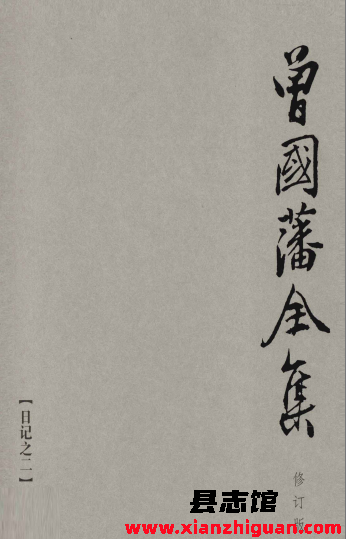 曾國藩全集
修订版
【日记之二】
县志馆
www.xianzhiguan.com